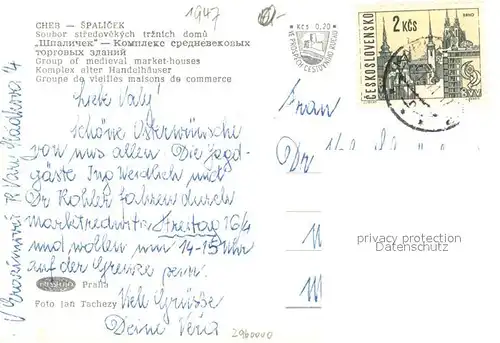 1947
CHEB — ŠPALÍČEK
Soubor středověkých tržních domů
„Шпаличек" — Комплекс средневековых
торговых зданий
Group of medieval market-houses
Komplex alter Handelhäuser
Groupe de vieilles maisons de commerce
Kčs 0,20
2 Kčs
BRNO
ČESKOSLOVENSKO
Liebe Valy!
Schöne Osterwünsche
von uns allen. Die Jagd-
gäste Ing Weidlich und
Dr Kohler fahren durch
Marktredwitz Freitag 16/4
und wollen um 14-15 Uhr
auf der Grenze sein.
Praha
Foto Jan Tachezy
Viele Grüsse
Deine Věra
2960000
Frau
Dr
privacy protection
Datenschutz